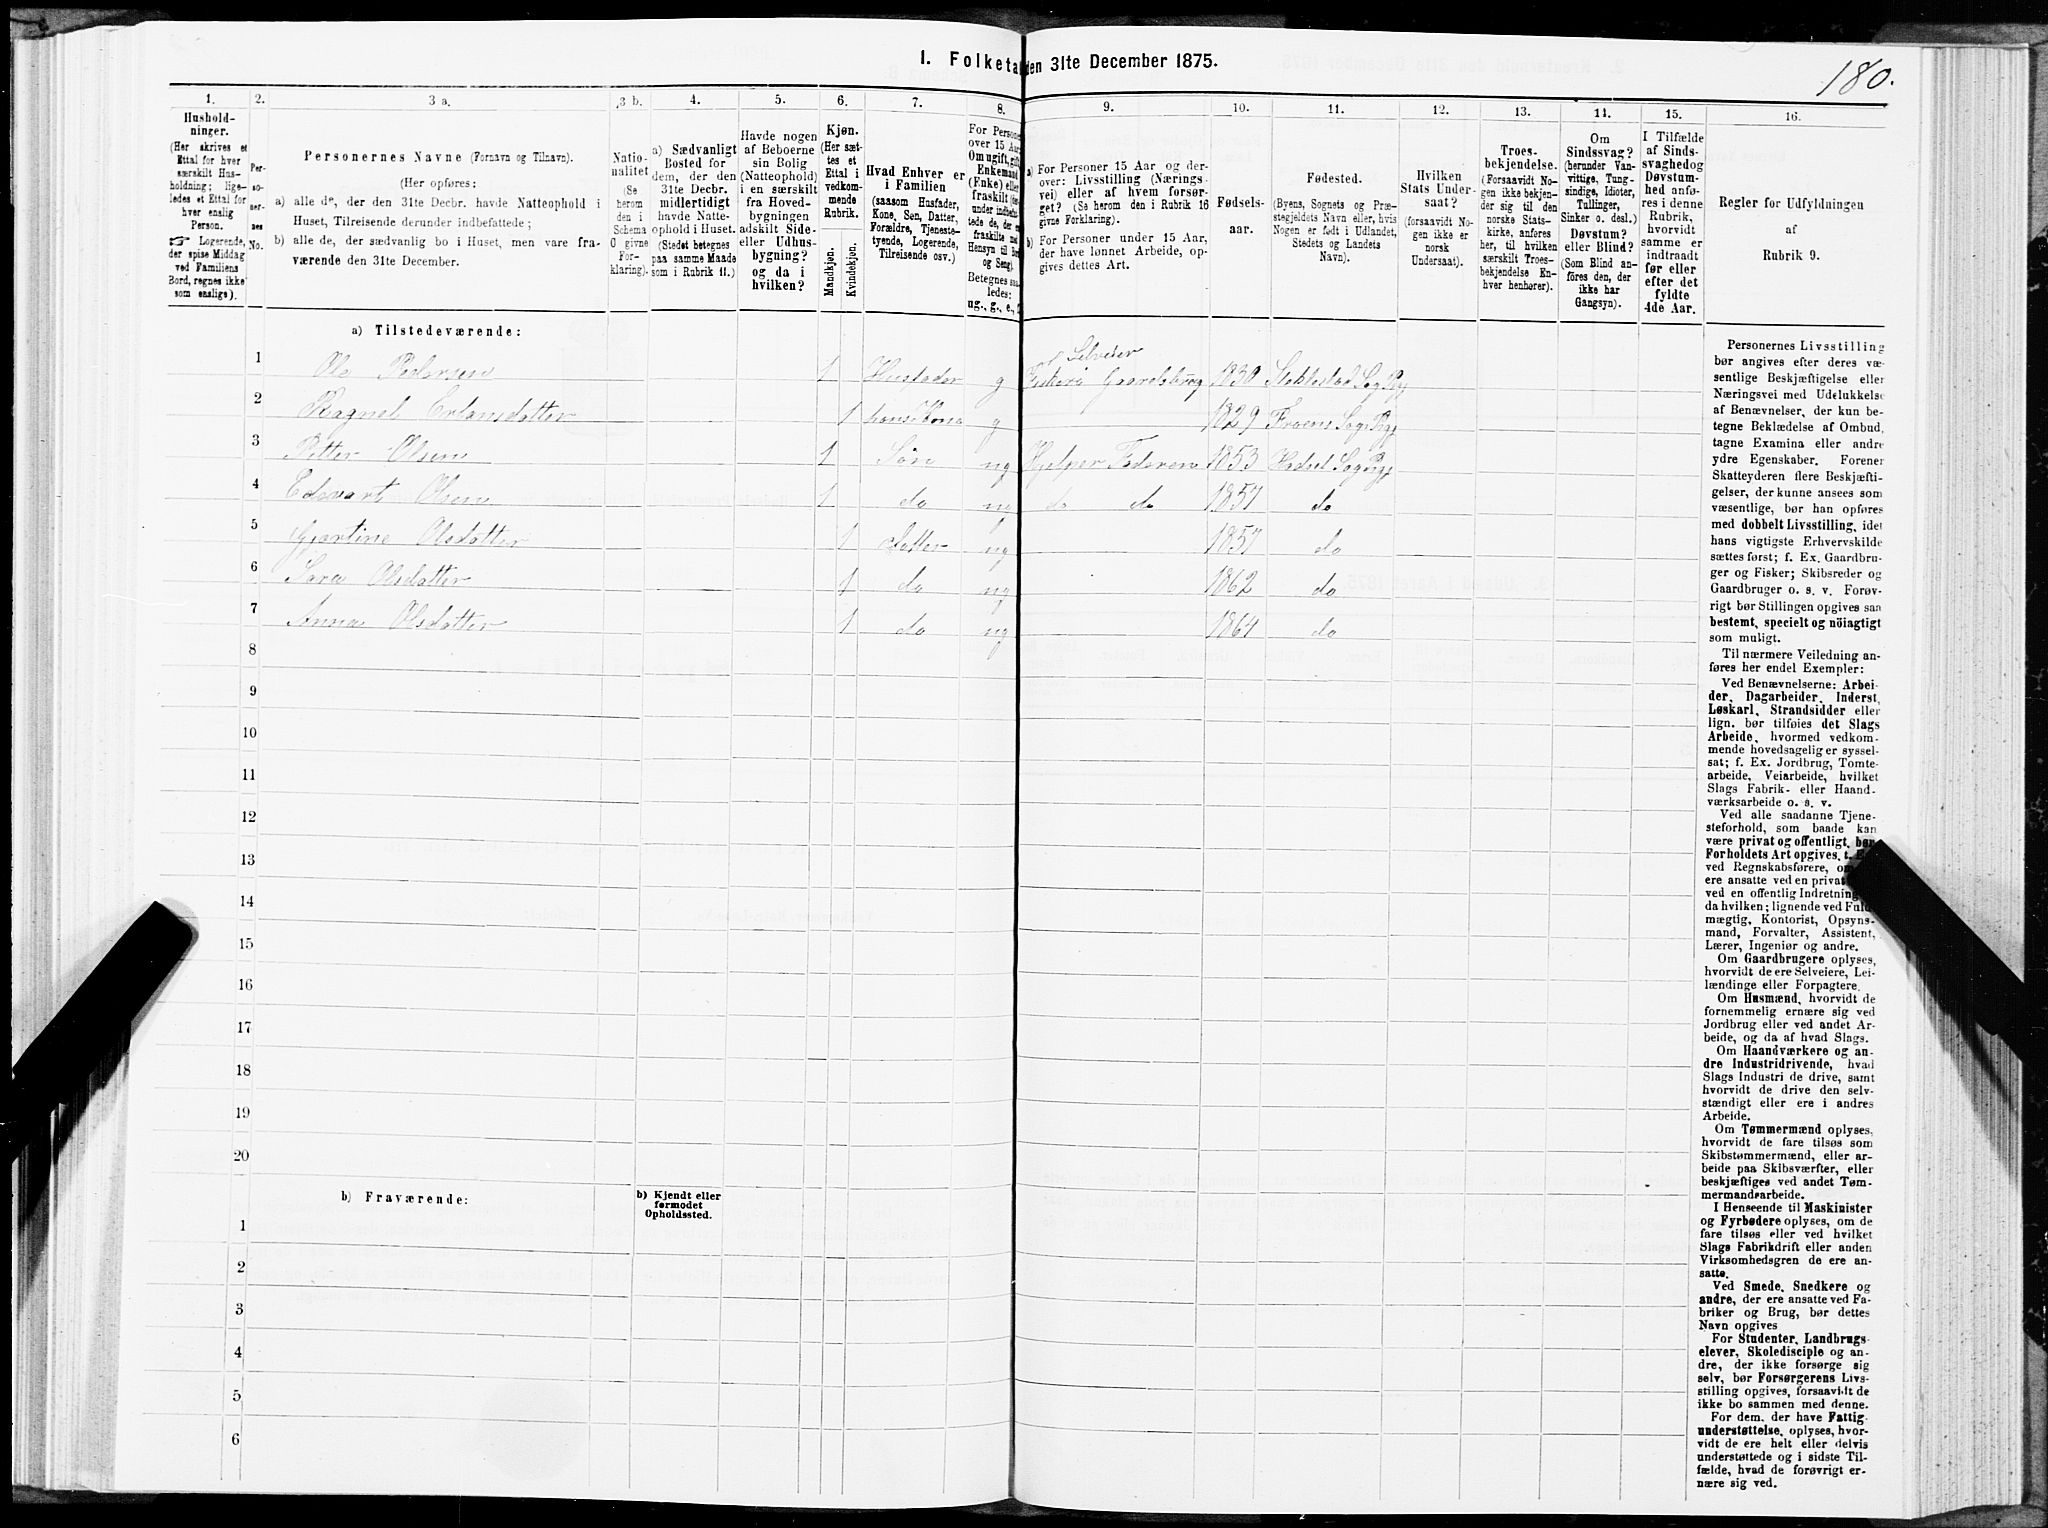 I. Folketal den 31te December 1875.
180.
1.
2.
3 a.
3 b.
4.
5.
6.
7.
8.
9.
10.
11.
12.
13.
14.
15.
16.
Hushold-
ninger.
(Her skrives et
Ettal for hver
særskilt Hus-
holdning; lige-
ledes et Ettal for
hver enslig
Person.
☞ Logerende,
der spise Middag
ved Familiens
Bord, regnes ikke
som enslige).
Per-
so-
ner-
nes
No.
Personernes Navne (Fornavn og Tilnavn).
(Her opføres:
a) alle de, der den 31te Decbr. havde Natteophold i
Huset, Tilreisende derunder indbefattede;
b) alle de, der sædvanlig bo i Huset, men vare fra-
værende den 31te December.
Natio-
nalitet
(Se
herom
den i
Schema
O givne
For-
klaring).
a) Sædvanligt
Bosted for
dem, der den
31te Decbr.
midlertidigt
havde Natte-
ophold i Huset.
(Stedet betegnes
paa samme Maade
som i Rubrik 11.)
Havde nogen
af Beboerne
sin Bolig
(Natteophold)
i en særskilt
fra Hoved-
bygningen
adskilt Side-
eller Udhus-
bygning?
og da i
hvilken?
Kjøn.
(Her sæt-
tes et
Ettal i
vedkom-
mende
Rubrik.
Mandkjøn.
Kvindekjøn.
Hvad Enhver er
i Familien
(saasom Husfader,
Kone, Søn, Datter,
Forældre, Tjeneste-
tyende, Logerende,
Tilreisende osv.)
For Personer
over 15 Aar:
Om ugift, gift,
Enkemand
(Enke) eller
fraskilt
Betegnes saa-
ledes:
ug., g., e.,
a) For Personer 15 Aar og der-
over: Livsstilling (Nærings-
vei) eller af hvem forsør-
get? (Se herom den i Rubrik 16
givne Forklaring).
b) For Personer under 15 Aar,
der have lønnet Arbeide, op-
gives dettes Art.
Fødsels-
aar.
Fødested.
(Byens, Sognets og Præ-
stegjeldets Navn eller, hvis
Nogen er født i Udlandet,
Stedets og Landets
Navn).
Hvilken
Stats Under-
saat?
(forsaavidt No-
gen ikke er
norsk
Undersaat).
Troes-
bekjendelse.
(Forsaavidt No-
gen ikke bekjen-
der sig til den
norske Stats-
kirke, anføres
her, til hvilken
særskilt Troes-
bekjendelse En-
hver henhører).
Om
Sindssvag?
(herunder Van-
vittige, Tung-
sindige, Idioter,
Tullinger,
Sinker o. desl.)
Døvstum?
eller Blind?
(Som Blind an-
føres den, der
ikke har
Gangsyn).
I Tilfælde
af Sinds-
svaghed og
Døvstum-
hed anfø-
res i denne
Rubrik,
hvorvidt
samme er
indtraadt
før eller
efter det
fyldte
4de Aar.
Regler for Udfyldningen
af
Rubrik 9.
a) Tilstedeværende:
1 Ole Pedersen 1 Husfader g Selveier Fisker & Gaardsbrug 1830 Stoklestad Sog Pgj
2 Ragnel Erlansdatter 1 hans Kone g 1829 Froens Sog Pgj
3 Petter Olsen 1 Søn ug Hjelper Faderen 1853 Hadsel Sog Pgj
4 Edevart Olsen 1 do ug do do 1857 do
5 Gjertine Olsdatter 1 datter ug 1857 do
6 Sara Olsdatter 1 do ug 1862 do
7 Anna Olsdatter 1 do ug 1864 do
8
9
10
11
12
13
14
15
16
17
18
19
20
b) Fraværende:
b) Kjendt eller
formodet
Opholdssted.
1
2
3
4
5
6
Personernes Livsstilling
bør angives efter deres væ-
sentlige Beskjæftigelse eller
Næringsvei med Udelukkelse
af Benævnelser, der kun be-
tegne Beklædelse af Ombud,
tagne Examina eller andre
ydre Egenskaber. Forener
Skatteyderen flere Beskjæfti-
gelser, der kunne ansees som
væsentlige, bør han opføres
med dobbelt Livsstilling, idet
hans vigtigste Erhvervskilde
sættes først; f. Ex. Gaardbru-
ger og Fisker; Skibsreder og
Gaardbruger o. s. v. Forøv-
rigt bør Stillingen opgives saa
bestemt, specielt og nöiagtigt
som muligt.
Til nærmere Veiledning an-
føres her endel Exempler:
Ved Benævnelserne: Arbei-
der, Dagarbeider, Inderst,
Løskarl, Strandsidder eller
lign. bør tilføies det Slags
Arbeide, hvormed vedkom-
mende hovedsagelig er syssel-
sat; f. Ex. Jordbrug, Tomte-
arbeide, Veiarbeide, hvilket
Slags Fabrik- eller Haand-
værksarbeide o. s. v.
Ved alle saadanne Tjene-
steforhold, som baade kan
være privat og offentligt, bør
Forholdets Art opgives,
ved Regnskabsførere,
ere ansatte ved en privat
ved en offentlig Indretning
da hvilken; lignende ved Fuld-
mægtig, Kontorist, Opsyns-
mand, Forvalter, Assistent,
Lærer, Ingeniør og andre.
Om Gaardbrugere oplyses,
hvorvidt de ere Selveiere, Lei-
lændinge eller Forpagtere.
Om Husmænd, hvorvidt de
fornemmelig ernære sig ved
Jordbrug eller ved andet Ar-
beide, og da af hvad Slags.
Om Haandværkere og an-
dre Industridrivende, hvad
Slags Industri de drive, samt
hvorvidt de drive den selv-
stændigt eller ere i andres
Arbeide.
Om Tømmermænd oplyses,
hvorvidt de fare tilsøs som
Skibstømmermænd, eller ar-
beide paa Skibsværfter, eller
beskjæftiges ved andet Tøm-
mermandsarbeide.
I Henseende til Maskinister
og Fyrbødere oplyses, om de
fare tilsøs eller ved hvilket
Slags Fabrikdrift eller anden
Virksomhedsgren de ere an-
satte.
Ved Smede, Snedkere og
andre, der ere ansatte ved Fa-
briker og Brug, bør dettes
Navn opgives
For Studenter, Landbrugs-
elever, Skoledisciple og an-
dre, der ikke forsørge sig
selv, bør Forsørgerens Livs-
stilling opgives, forsaavidt de
ikke bo sammen med denne.
For dem, der have Fattig-
understøttelse, oplyses, hvor-
vidt de ere helt eller delvis
understøttede og i sidste Til-
fælde, hvad de forøvrigt er-
nære sig ved.